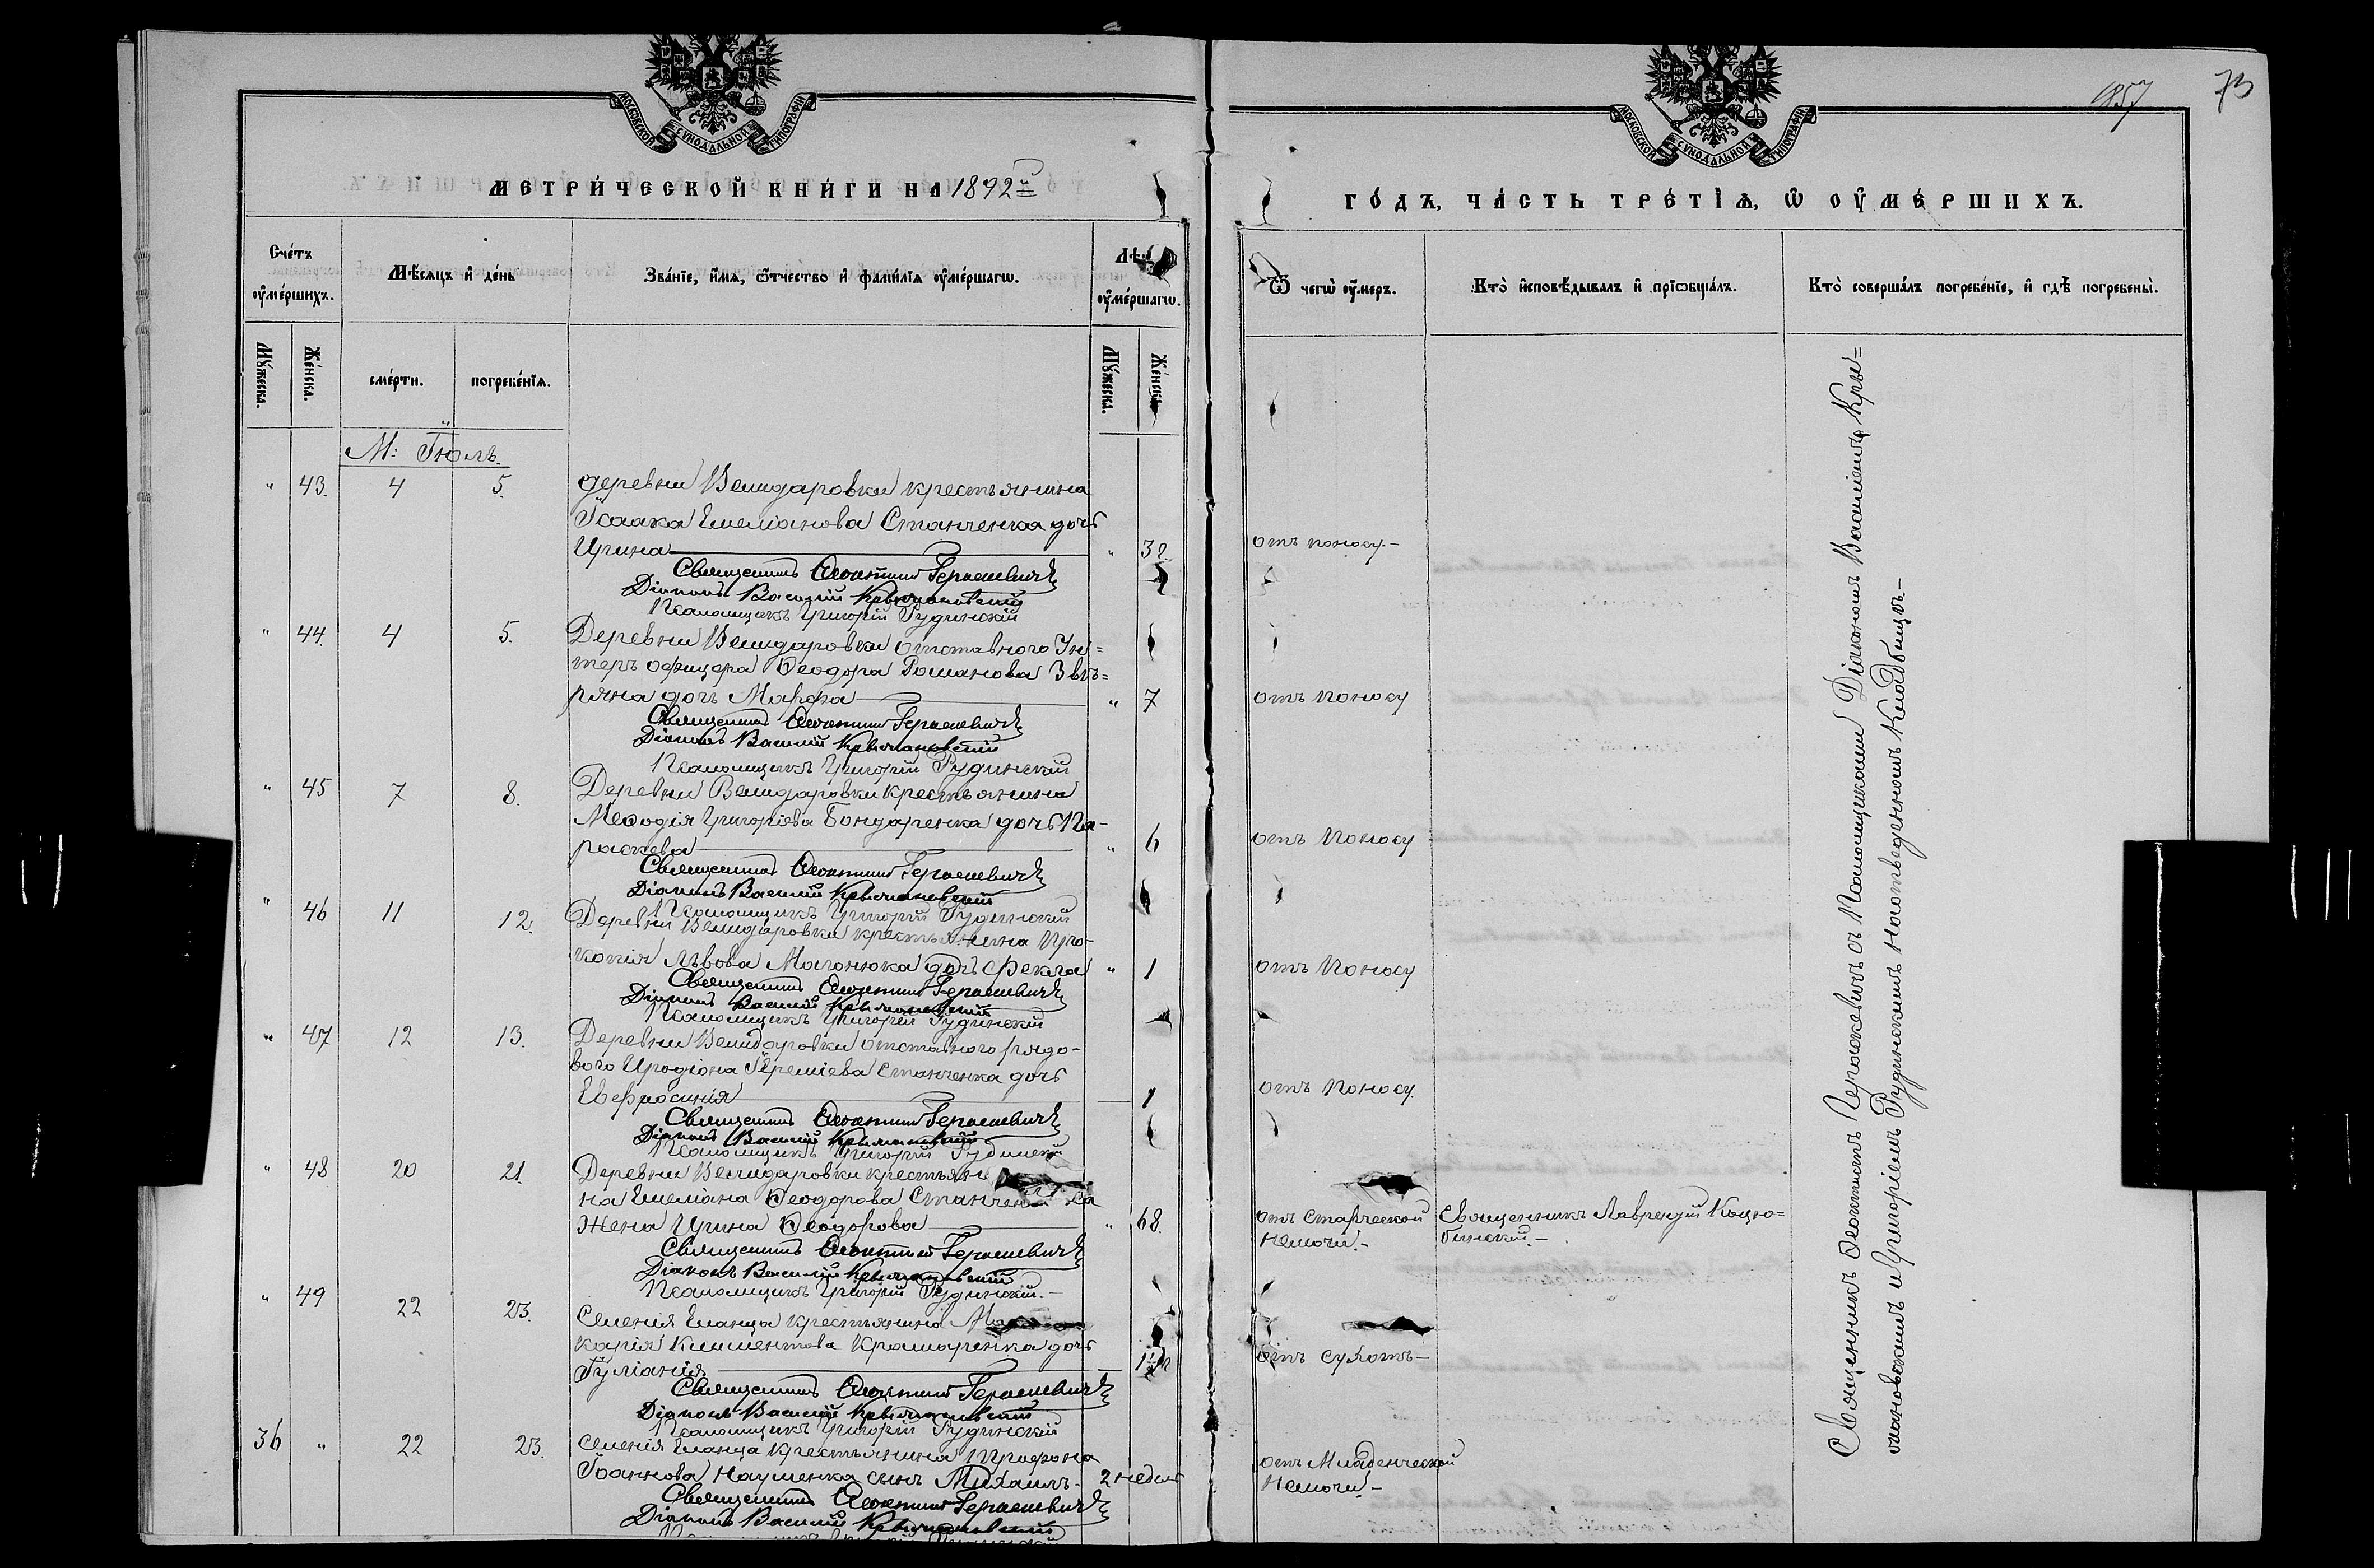 857 73
МОСКОВСКОЙ СѴНОДАЛЬНОЙ ТИПОГРАФІИ
МОСКОВСКОЙ СѴНОДАЛЬНОЙ ТИПОГРАФІИ
МЕТРИ́ЧЕСКОЙ КНИ́ГИ НА 1892й
ГО́ДЪ, ЧА́СТЬ ТРЕ́ТІѦ, Ѿ ОУ҆МЕ́РШИХЪ.
Сче́тъ оу҆ме́ршихъ.
Мѣ́сѧцъ и҆ де́нь
Зва́нїе, и҆́мѧ, ѻ҆́тчество и҆ фами́лїѧ оу҆ме́ршагѡ.
Лѣт оу҆ме́ршагѡ.
Ѿ чегѡ̀ оу҆́меръ.
Кто̀ и҆сповѣ́дывалъ и҆ прїѡбща́лъ.
Кто̀ соверша́лъ погребе́нїе, и҆ гдѣ̀ погребены̀.
Мꙋ́жеска. Же́нска. сме́рти. погребе́нїѧ. Мꙋ́жеска. Же́нска.
М: Іюль.
" 43. 4 5. деревни Велидаровки крестьянина
Ісаака Емеліанова Станченка дочь
Ирина " 3 отъ поносу.-
Священникъ Ѳеоктистъ Герасевичъ
Діаконъ Василій Крыжановскій
Псаломщикъ Григорій Рудинскій
" 44. 4 5. Деревни Велидаровки отставного Ун=
теръ офицера Ѳеодора Романова Звѣ=
ряна дочь Марфа " 7 отъ поносу
Священникъ Ѳеоктистъ Герасевичъ
Діаконъ Василій Крыжановскій
Псаломщикъ Григорій Рудинскій
" 45 7 8. Деревни Велидаровки крестьянина
Меѳодія Григоріева Бондаренка дочь Па-
раскева " 6 отъ поносу
Священникъ Ѳеоктистъ Герасевичъ
Діаконъ Василій Крыжановскій
Псаломщикъ Григорій Рудинскій
" 46 11 12. Деревни Велидаровки крестьянина Про-
копія Львова Магонюка дочь Фекла " 1 отъ поносу
Священникъ Ѳеоктистъ Герасевичъ
Діаконъ Василій Крыжановскій
Псаломщикъ Григорій Рудинскій
" 47 12 13. Деревни Велидаровки отставного рядо-
вого Иродіона Іереміева Станченка дочь
Евфросинія 1 отъ поносу.
Священникъ Ѳеоктистъ Герасевичъ
Діаконъ Василій Крыжановскій
Псаломщикъ Григорій Рудинскій
" 48 20 21. Деревни Велидаровки крестьяни
на Емеліана Ѳеодорова Станченка
жена Ирина Ѳеодорова " 68. отъ старческой Священникъ Лаврентій Коцю=
немочи.- бинскій.-
Священникъ Ѳеоктистъ Герасевичъ
Діаконъ Василій Крыжановскій
Псаломщикъ Григорій Рудинскій.-
" 49 22 23. Селенія Еланца крестьянина Ма
карія Климентова Крамаренка дочь
Іуліанія 1½ отъ сухотъ-
Священникъ Ѳеоктистъ Герасевичъ
Діаконъ Василій Крыжановскій
Псаломщикъ Григорій Рудинскій
36 " 22 23. Селенія Еланца крестьянина Трифона
Іоаннова Науменка сынъ Михаилъ- 2 недель отъ Младенческой
немочи.-
Священникъ Ѳеоктистъ Герасевичъ
Діаконъ Василій Крыжановскій
Священникъ Ѳеоктистъ Герасевичъ съ Псаломщиками Діакономъ Василіемъ Кры=
жановскимъ и Григоріемъ Рудинскимъ на отведенномъ Кладбищѣ.-